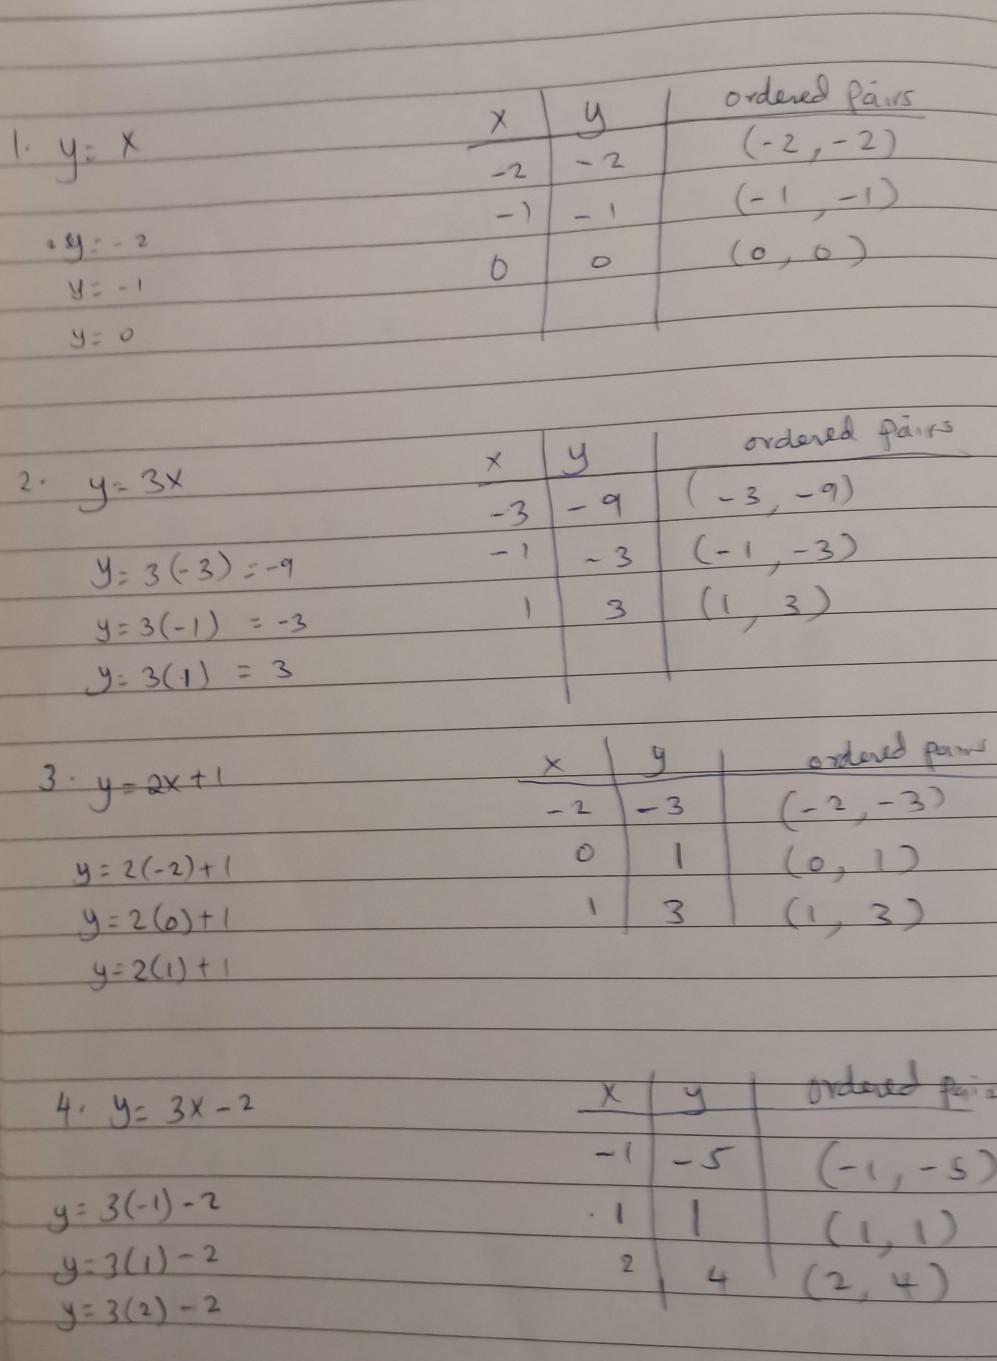 x y ordered pairs
1. y = x -2 -2 (-2, -2)
-1 -1 (-1, -1)
y = -2 0 0 (0, 0)
y = -1
y = 0
x y ordered pairs
2. y = 3x -3 -9 (-3, -9)
y = 3(-3) = -9 -1 -3 (-1, -3)
y = 3(-1) = -3 1 3 (1, 3)
y = 3(1) = 3
x y ordered pairs
3. y = 2x + 1 -2 -3 (-2, -3)
y = 2(-2) + 1 0 1 (0, 1)
y = 2(0) + 1 1 3 (1, 3)
y = 2(1) + 1
4. y = 3x - 2 x y ordered pairs
-1 -5 (-1, -5)
y = 3(-1) - 2 1 1 (1, 1)
y = 3(1) - 2 2 4 (2, 4)
y = 3(2) - 2